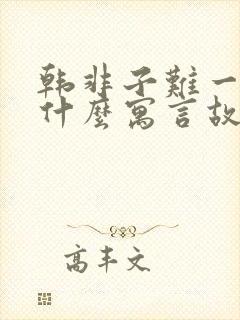 韩非子難一
什麼寓言故
高丰文